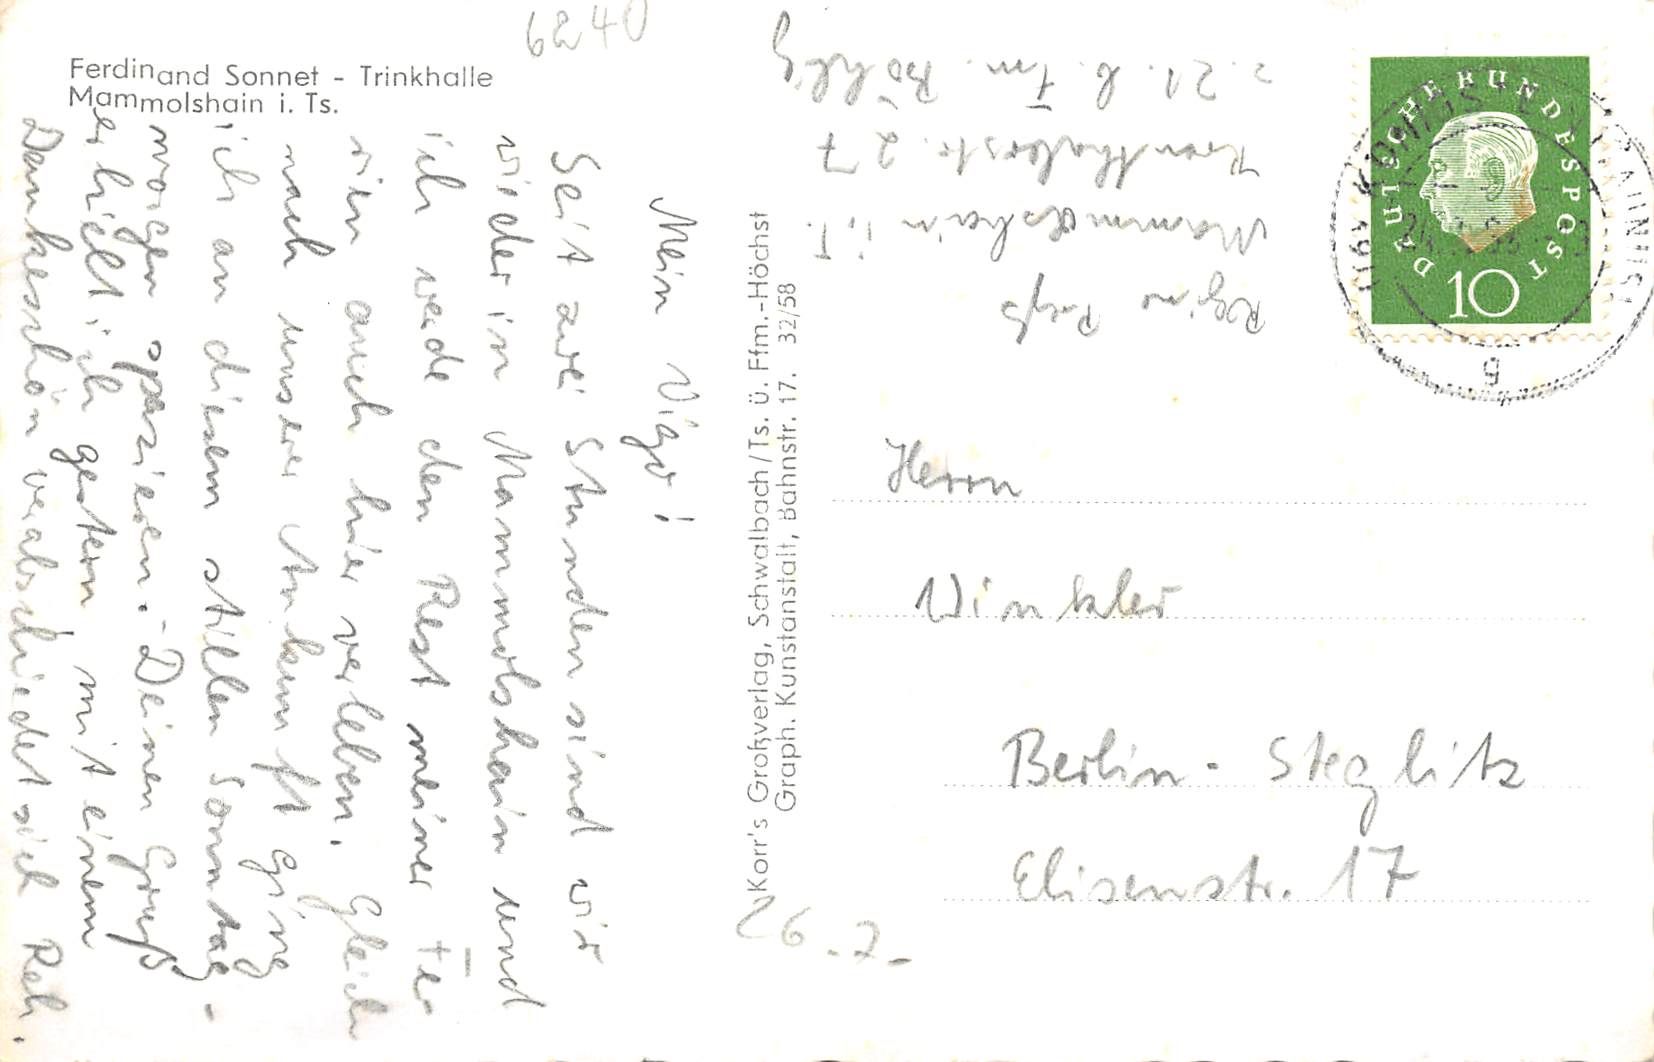 6240
Ferdinand Sonnet - Trinkhalle
Mammolshain i. Ts.
Mein Vigo!
Seit zwei Stunden sind wir
wieder in Mammolshain und
ich werde den Rest meiner Fer
ien auch hier verleben. Gleich
nach unserer Ankunft ging
ich an diesem stillen Sonntag-
morgen spazieren. - Deinen Gruß
erhielt ich gestern mit einem
Dankeschön verabschiedet sich Reh.
26.7.
Korr's Großverlag, Schwalbach/Ts. ü. Ffm.-Höchst
Graph. Kunstanstalt, Bahnstr. 17. 32/58
Regine
Mammolshain i. T.
Kronthalerstr. 27
z. Zt. b. Fm.
DEUTSCHE BUNDESPOST
10
Herrn
Winkler
Berlin-Steglitz
Elisenstr. 17